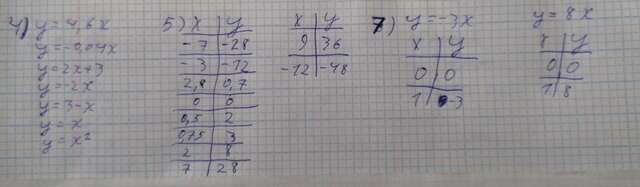 4) y = 4,6x
y = -0,04x
y = 2x+3
y = -2x
y = 3-x
y = x
y = x²
5) x y
-7 -28
-3 -12
2,8 0,7
0 0
0,5 2
0,75 3
2 8
7 28
x y
9 36
-12 -48
7) y = -3x
x y
0 0
1 -3
y = 8x
x y
0 0
1 8